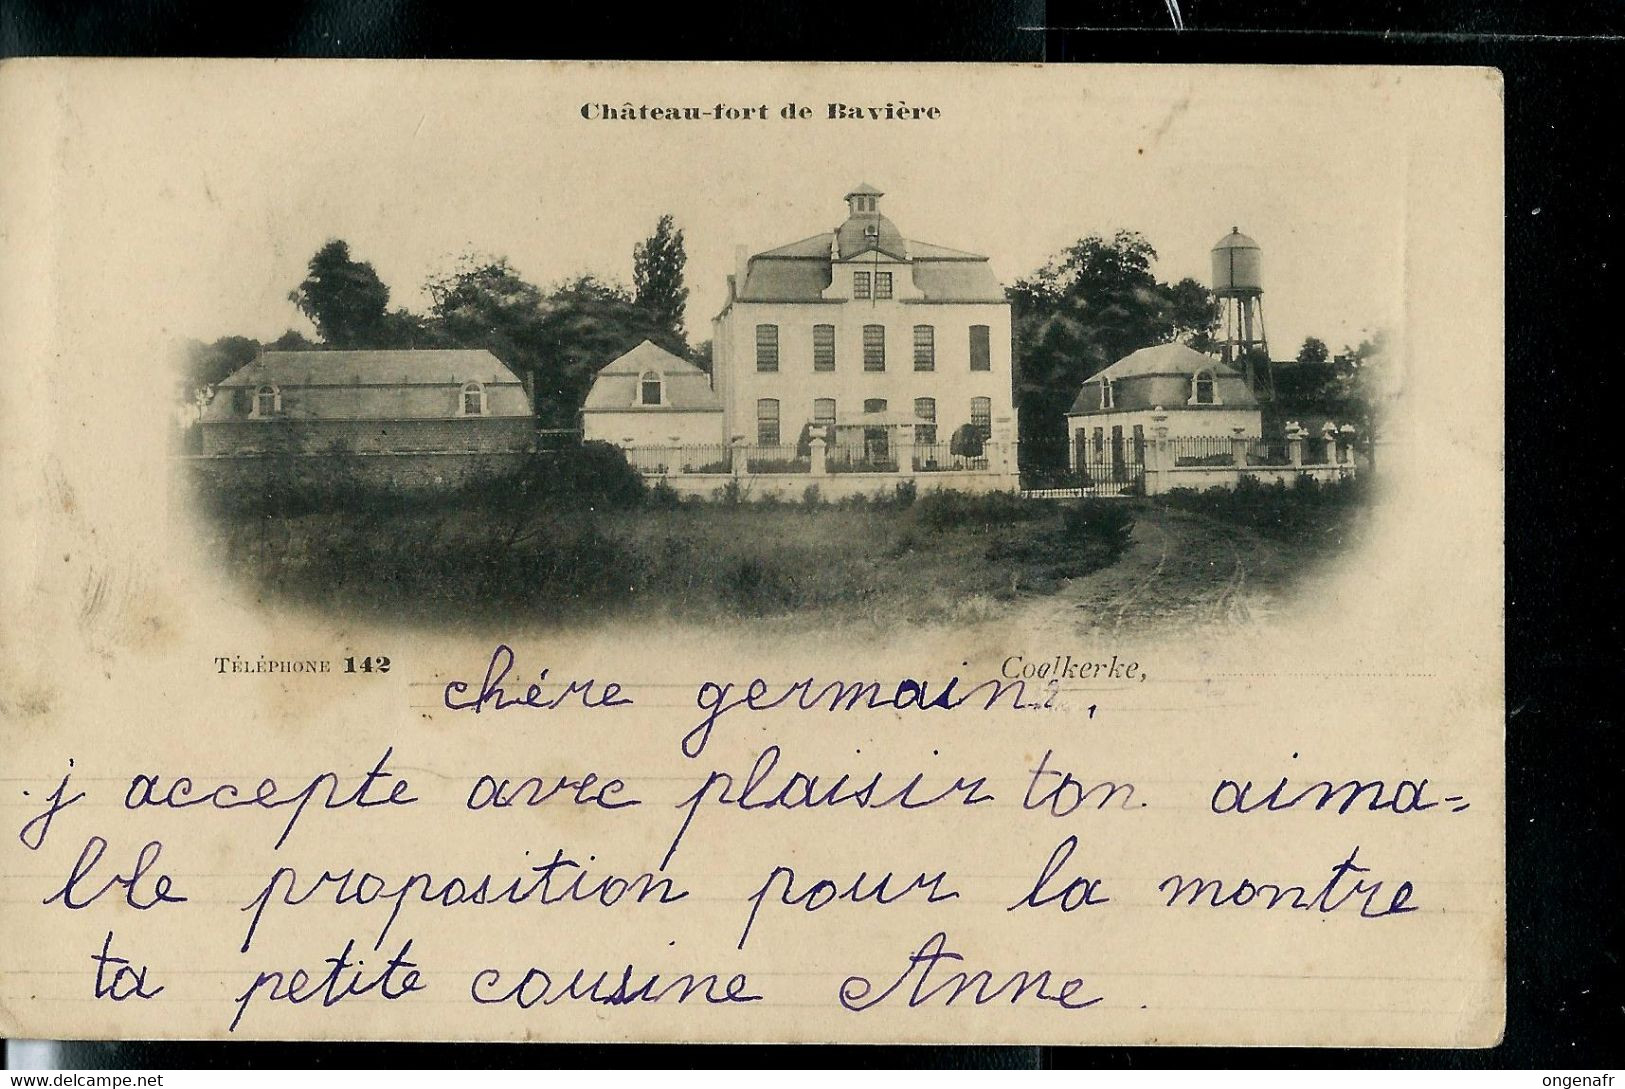 Château-fort de Bavière
TÉLÉPHONE 142
Coolkerke,
chére germaine,
j accepte avec plaisir ton aima=
ble proposition pour la montre
ta petite cousine Anne.
www.delcampe.net
ongenafr